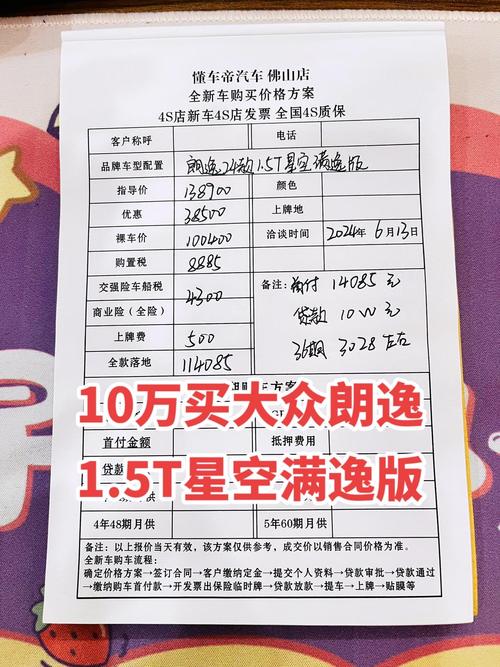 懂车帝汽车 佛山店
全新车购买价格方案
4S店新车4S店发票 全国4S质保
客户称呼 电话
品牌车型配置 朗逸24款1.5T星空满逸版
指导价 138900 颜色
优惠 38500 上牌地
裸车价 100400 洽谈时间 2024年6月13日
购置税 8885
交强险车船税 4300 备注: 首付 14085 元
商业险（全险） 贷款 10W 元
上牌费 500 36期 3028 左右
全款落地 114085
方案
10万买大众朗逸
首付金额 抵押费用
1.5T星空满逸版
4年48期月供 5年60期月供
备注：以上报价当天有效，该方案仅供参考，成交价以销售合同价格为准。
全新车购车流程：
确定价格方案→签订合同→客户缴纳定金→提交个人资料→贷款审批→贷款通过
→缴纳购车首付款→开发票出保险临时牌→贷款放款→提车→上牌→贴膜等